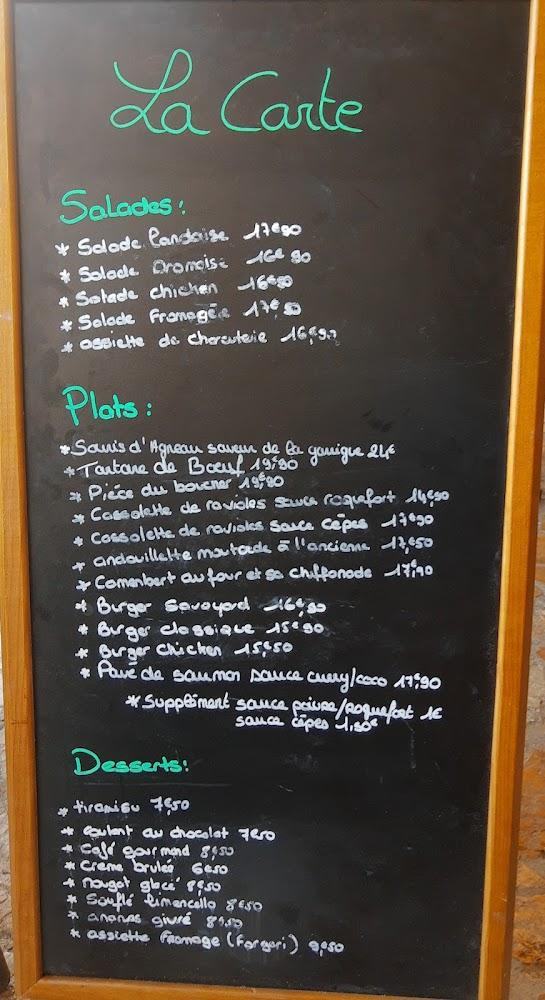 La Carte
Salades:
* Salade Landaise 17€90
* Salade Dromoise 16€90
* Salade chicken 16€50
* Salade Fromagée 17€50
* assiette de charcuterie 16€90
Plats:
* Souris d'Agneau saveur de la garrigue 24€
* Tartare de Bœuf 19€90
* Pièce du boucher 19€90
* Cassolette de ravioles sauce roquefort 14€90
* cassolette de ravioles sauce cèpes 17€90
* andouillette moutarde à l'ancienne 17,€50
* Camembert au four et sa chiffonade 17,€90
* Burger Savoyard 16€90
* Burger classique 15€90
* Burger chicken 15,€50
* Pavé de saumon sauce curry/coco 17,€90
* Supplément sauce poivre/roquefort 1€
sauce cèpes 1,50€
Desserts:
* tiramisu 7€50
* coulant au chocolat 7€50
* Café gourmand 8€50
* Crème brulée 6€50
* nougat glacé 8€50
* Souflé limoncello 8€50
* ananas givré 8€50
* assiette fromage (Forgeri) 9,€50